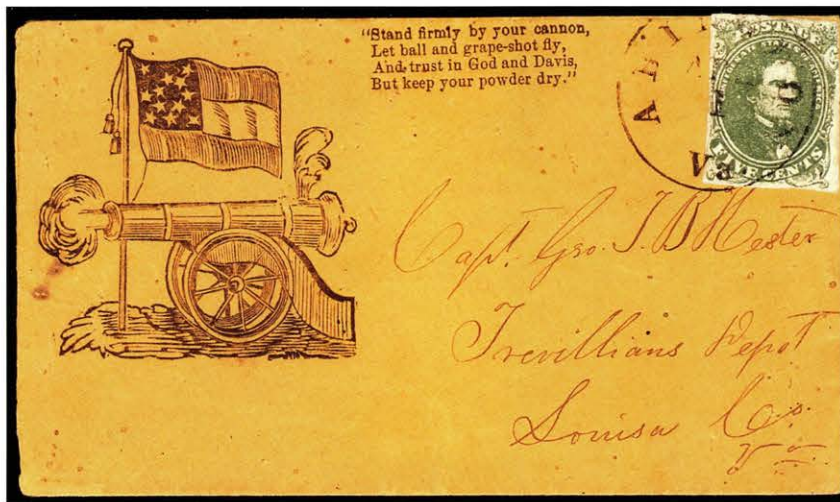 "Stand firmly by your cannon,
Let ball and grape-shot fly,
And trust in God and Davis,
But keep your powder dry."
Va
FIVE CENTS
Capt. Geo. T. B
Trevillians Depot
Louisa Co.
Va